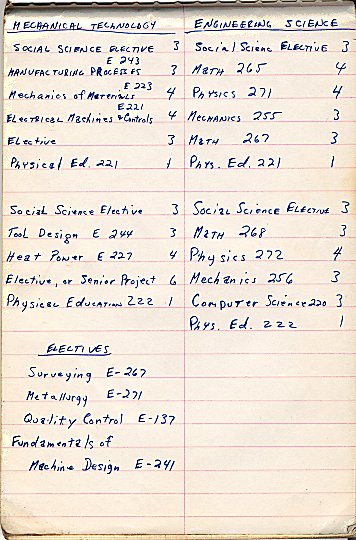 MECHANICAL TECHNOLOGY
SOCIAL SCIENCE ELECTIVE 3
E 243
MANUFACTURING PROCESSES 3
E 223
Mechanics of Materials 4
E221
ELECTRICAL Machines & Controls 4
Elective 3
Physical Ed. 221 1
Social Science Elective 3
Tool Design E 244 3
Heat Power E 227 4
Elective, or Senior Project 6
Physical Education 222 1
ELECTIVES
Surveying E-267
Metallurgy E-271
Quality Control E-137
Fundamentals of
Machine Design E-241
ENGINEERING SCIENCE
Social Scienc Elective 3
Math 265 4
Physics 271 4
Mechanics 255 3
Math 267 3
Phys. Ed. 221 1
Social Science Elective 3
Math 268 3
Physics 272 4
Mechanics 256 3
Computer Science 220 3
Phys. Ed. 222 1